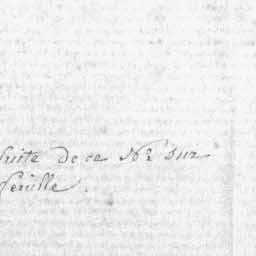 suite de ce N.º sur
feuille.